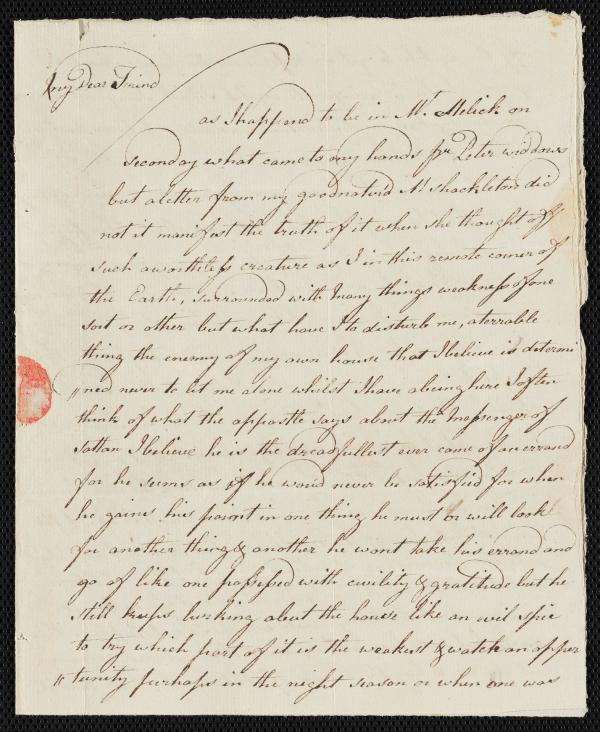 My Dear Friend
as I happend to be in Mt. Melick on
seconday what came to my hands pr Peter widdows
but a letter from my goodnatur'd A: Shackleton did
not it manifest the truth of it when she thought off
such a worthless creature as I in this remote corner of
the Earth, surrounded with many things weakness of one
sort or other but what have I to disturb me, a terrable
thing the enemy of my own house that I believe is determi
"ned never to let me alone whilst I have a being here I often
think of what the appostle says about the Messenger of
sattan I believe he is the dreadfullest ever came of an errand
for he seems as if he wou'd never be satisfied for when
he gains his paiont in one thing he must or will look
for another thing & another he wont take his errand and
go of like one possessed with civility & gratitude but he
still keeps lurking about the house like an evil spie
to try which part of it is the weakest & watch an oppor
"tunity perhaps in the night season or when one was